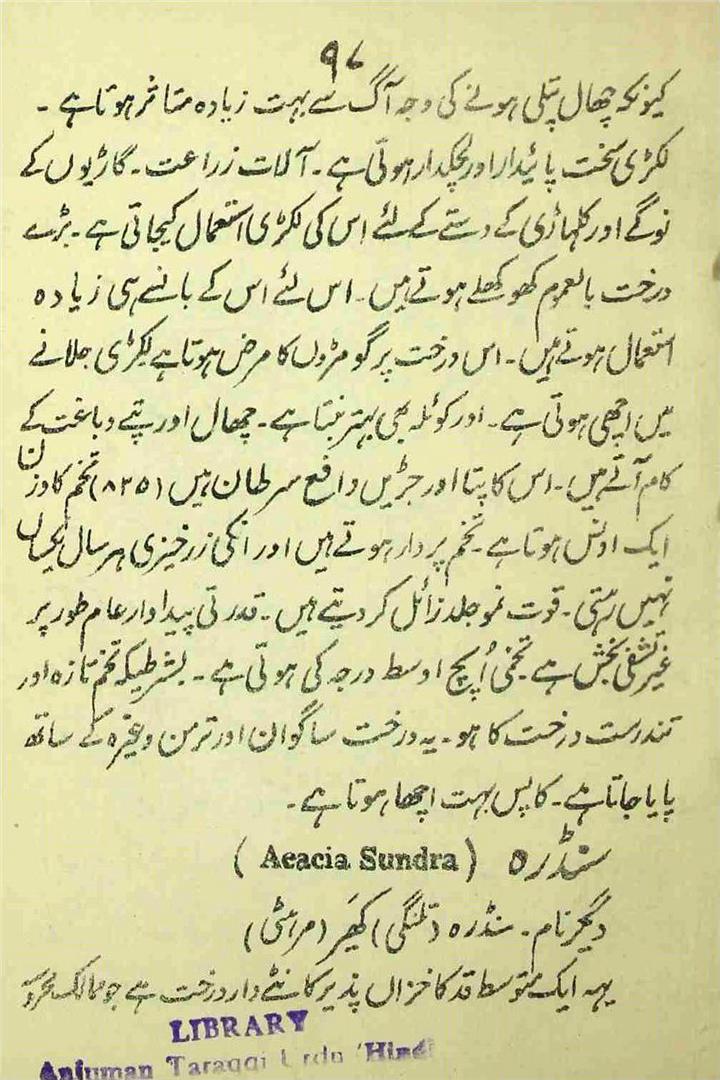 ۹۷
کیونکہ چھال پتلی ہونے کی وجہ آگ سے بہت زیادہ متاثر ہوتا ہے ۔
لکڑی سخت پائیدار اور لچکدار ہوتی ہے ۔ آلات زراعت ۔ گاڑیوں کے
نوگے اور کلہاڑی کے دستے کے لئے اس کی لکڑی استعمال کیجاتی ہے ۔ بڑے
درخت بالعموم کھوکھلے ہوتے ہیں ۔ اس لئے اس کے بانسے ہی زیادہ
استعمال ہوتے ہیں ۔ اس درخت پر گومڑوں کا مرض ہوتا ہے لکڑی جلانے
میں اچھی ہوتی ہے ۔ اور کوئلہ بھی بہتر بنتا ہے ۔ چھال اور پتے دباغت کے
کام آتے ہیں ۔ اس کا پتا اور جڑیں دافع سرطان ہیں (۸۲۵) تخم کا وزن
ایک اونس ہوتا ہے ۔ تخم پردار ہوتے ہیں اور انکی زرخیزی ہر سال یکساں
نہیں رہتی ۔ قوت نمو جلد زائل کر دیتے ہیں ۔ قدرتی پیداوار عام طور پر
غیر تشفی بخش ہے تخمی اُپج اوسط درجہ کی ہوتی ہے ۔ بشرطیکہ تخم تازہ اور
تندرست درخت کا ہو ۔ یہ درخت ساگوان اور ترمن وغیرہ کے ساتھ
پایا جاتا ہے ۔ کاپس بہت اچھا ہوتا ہے ۔
سنڈرہ (Acacia Sundra)
دیگر نام ۔ سنڈرہ (تلنگی) کھَیر (مرہٹی)
یہہ ایک متوسط قد کا خزاں پذیر کانٹے دار درخت ہے جو ممالک محروسہ
LIBRARY
Anjuman Taraqqi Urdu (Hind)